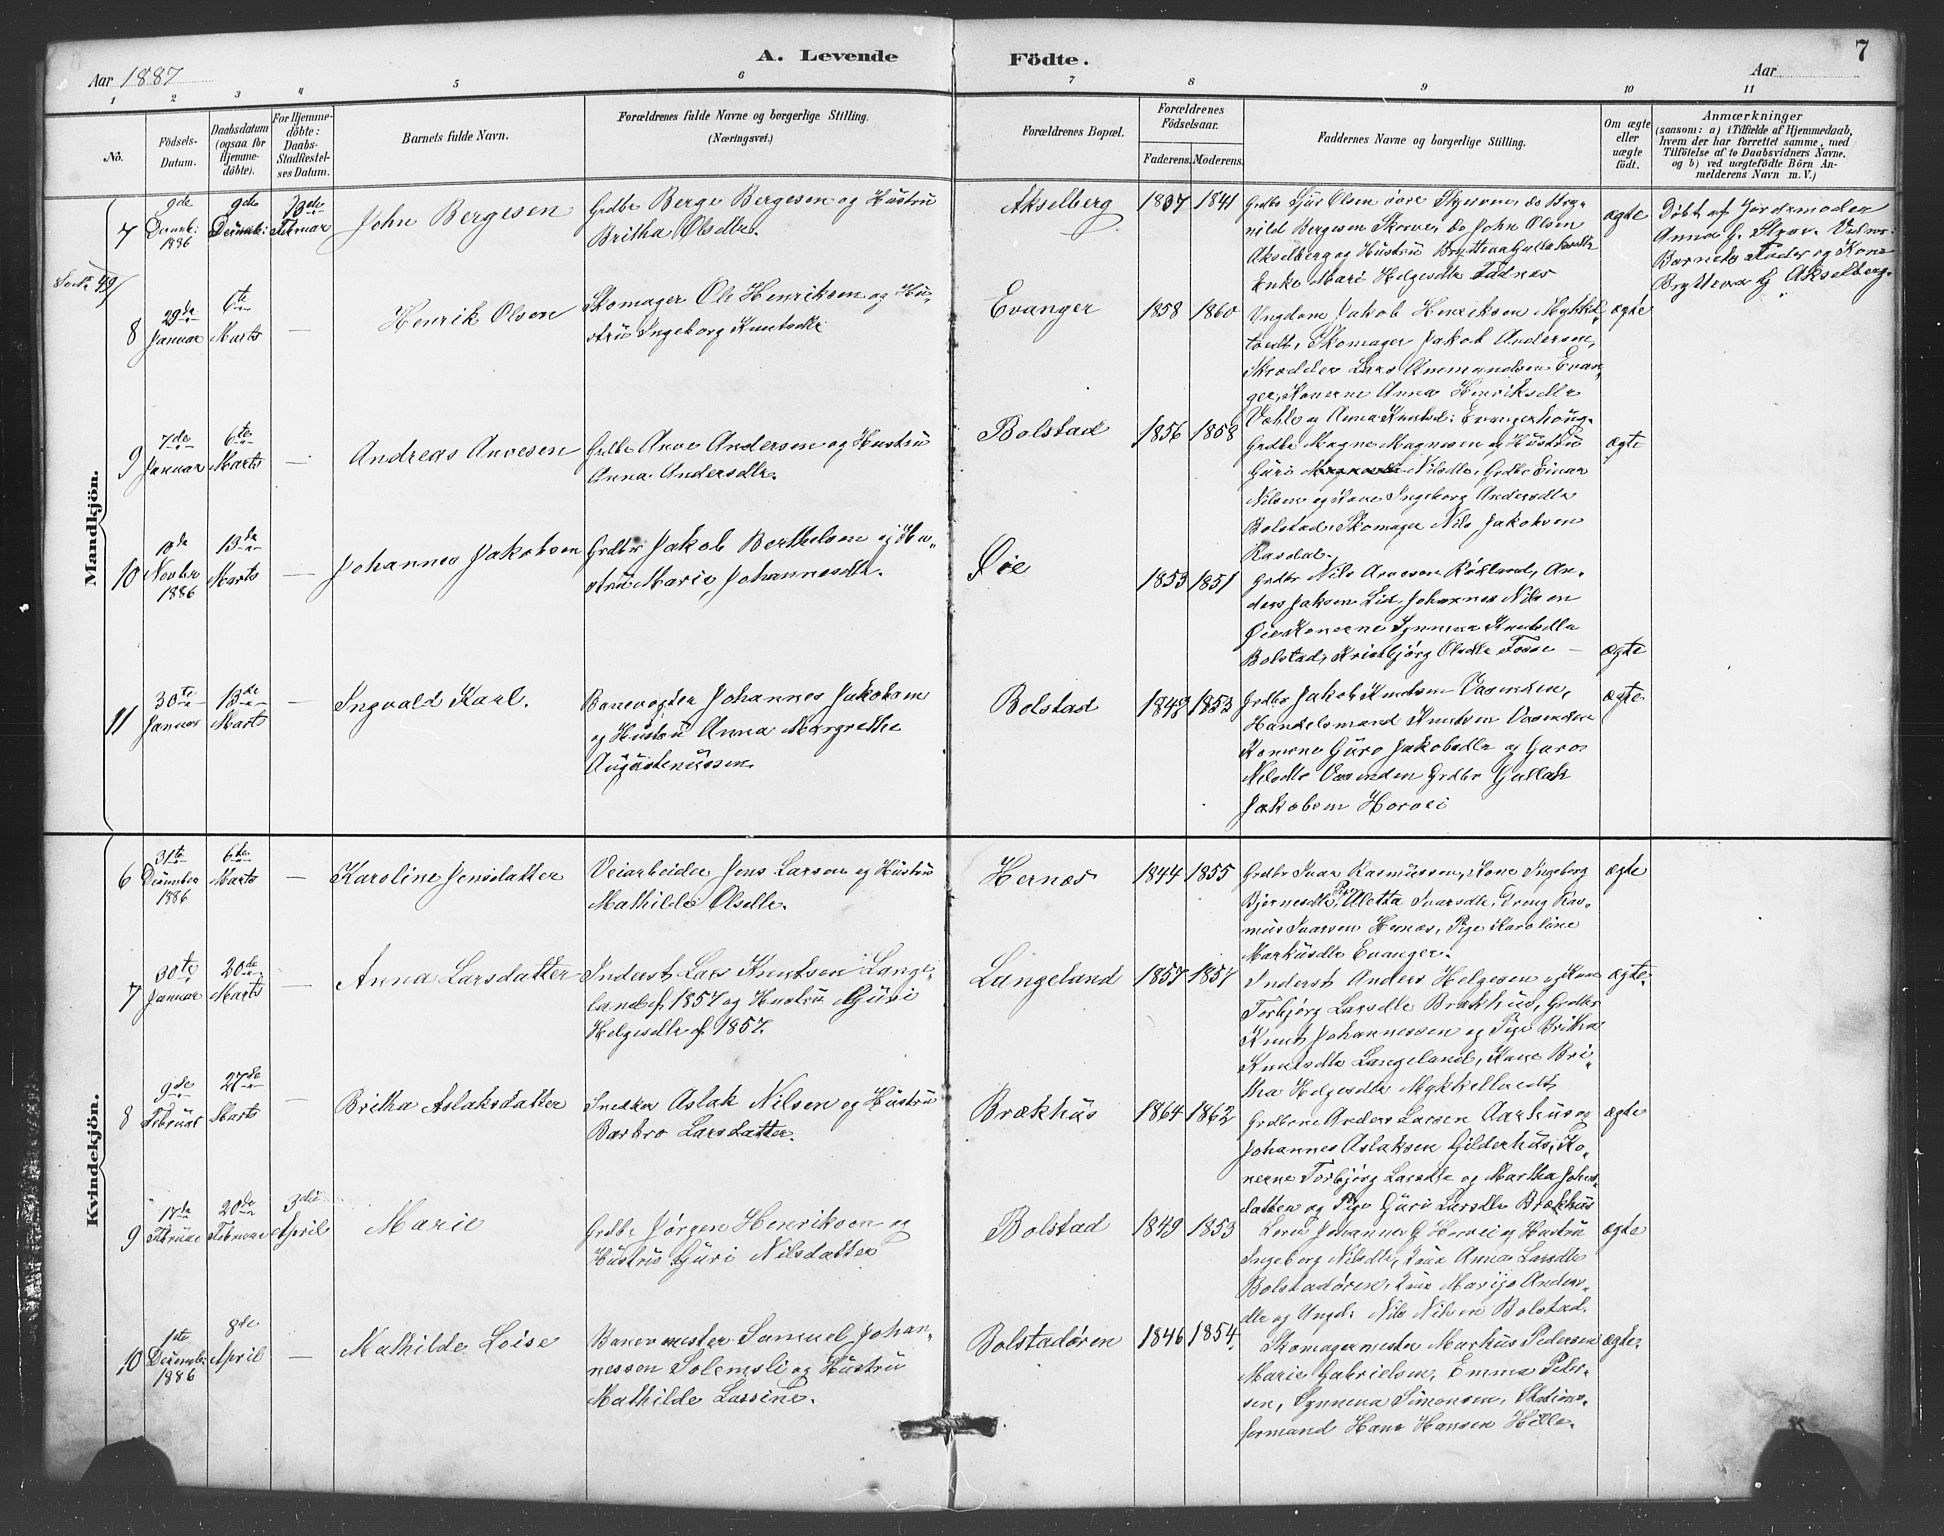 Aar 1887
A. Levende
Födte.
Aar
7
1 2 3 4 5 6 7 8 9 10 11
No.
Födsels-
Datum.
Daabsdatum
(ogsaa for
Hjemme-
döbte).
For Hjemme-
döbte:
Daabs-
Stadfæstel-
ses Datum.
Barnets fulde Navn.
Forældrenes fulde Navne og borgerlige Stilling.
(Næringsvei.)
Forældrenes Bopæl.
Forældrenes
Födselsaar.
Faderens. Moderens.
Faddernes Navne og borgerlige Stilling.
Om ægte
eller
uægte
födt.
Anmærkninger
(saasom: a) i Tilfælde af Hjemmedaab,
hvem der har forrettet samme, med
Tilföielse af to Daabsvidners Navne.
og b) ved uægtefödte Börn An-
melderens Navn m. V.)
Mandkjön.
7
9de
1886
9de
13de
Februar
John Bergesen
Grdbr Berge Bergesen og Hustru
Britha Olsdtr.
Akselberg
1837 1841
nild Bergesen Skorve, do John Olsen
Akselberg og Hustru Brytteva
Enke Mari Helgesdtr Fadnes
ægte
Döbt af Jordemoder
Barnets Fader og Kone
Brytteva G Akselberg.
8
29de
Januar
6te
Marts
—
Henrik Olsen
Skomager Ole Henriksen og Hu-
stru Ingeborg Knutsdtr
Evanger
1858 1860
Ungdom Jakob Henriksen Mykkel-
tvedt, Skomager Jakob Andersen,
Skrædder Lars Ammundsen Evan-
ger, Konerne Anna Henriksdtr
ægte
9
7de
Januar
6te
Marts
—
Andreas Arvesen
Grdbr Arve Andersen og Hustru
Anna Andersdtr.
Bolstad
1856 1858
Grdbr Magne Magnesen og Hustru
Guri Nilsdtr, Grdbr Einar
Nilsen og Kone Ingeborg Andersdtr
Bolstad, Skomager Nils Jakobsen
Rasdal.
ægte
10
18de
Novbr
1886
13de
Marts
—
Johannes Jakobsen
Grdbr Jakob Berthelsen og Hu-
stru Marie Johannesdtr.
Øie
1853 1851
Grdbr Nils Arvesen Röxland, An-
ders Jaksen Lid, Johannes Nilsen
Øie Konerne Synneva Knutsdtr
Bolstad, Kristbjørg Olsdtr Fosse —
ægte
11
30te
Januar
13de
Marts
—
Ingvald Karl.
Banevogter Johannes Jakobsen
og Hustru Anna Margrethe
Augustenussen.
Bolstad
1849 1853
Grdbr Jakob Knutsen Vasenden,
Handelsmand Knutsen Vasenden
Konerne Guro Jakobsdtr og Guro
Nilsdtr Vasenden Grdbr Gullak
Jakobsen Horvei
ægte
Kvindekjön.
6
31te
December
1886
6te
Marts
—
Karoline Jensdatter
Veiarbeider Jens Larsen og Hustru
Mathilde Olsdtr.
Hernes
1844 1855
Grdbr Ivar Rasmussen, Kone Ingeborg
Bjørnesdtr, Pige Aletta Ivarsdtr, Dreng Ras-
mus Ivarsen Hernes, Pige Karoline
Markusdtr Evanger.
ægte
7
30te
Januar
20de
Marts
—
Anna Larsdatter
Inderst Lars Knutsen Lange-
land f. 1857 og Hustru Guri
Helgesdtr f. 1857.
Langeland
1857 1857
Inderst Anders Helgesen og Kone
Torbjørg Larsdtr Brækhus, Grdbr
Knut Johannessen og Pige Britha
Knutsdtr Langeland, Kone Bri-
tha Helgesdtr Mykkeltvedt
ægte
8
9de
Februar
27de
Marts
—
Britha Aslaksdatter
Snedker Aslak Nilsen og Hustru
Barbro Larsdatter.
Brækhus
1864 1862
Grdbrne Anders Larsen Aarhus og
Johannes Aslaksen Gilderhus, Ko-
nerne Torbjørg Larsdtr og Martha Johns-
datter og Pige Guri Larsdtr Brækhus
ægte
9
17de
Februar
20de
Februar
3die
April
Marie
Grdbr Jørgen Henriksen og
Hustru Guri Nilsdatter
Bolstad
1849 1853
Johannes G Horvei og Hustru
Ingeborg Nilsdtr, Anna Larsdtr
Bolstadøren, Anders-
dtr og Ungd: Nils Nilsen Bolstad.
ægte
10
1ste
Decemb:
1886
8de
April
—
Mathilde Loise
Banevmester Samuel Johan-
nessen Solemsli og Hustru
Mathilde Larsine.
Bolstadøren
1846 1854.
Skomagermester Markus Pedersen
Marie Gabrielsen, Emma Peter-
sen, Synneva Simonsen, Stations-
formand Hans Hansen Hölle.
ægte.